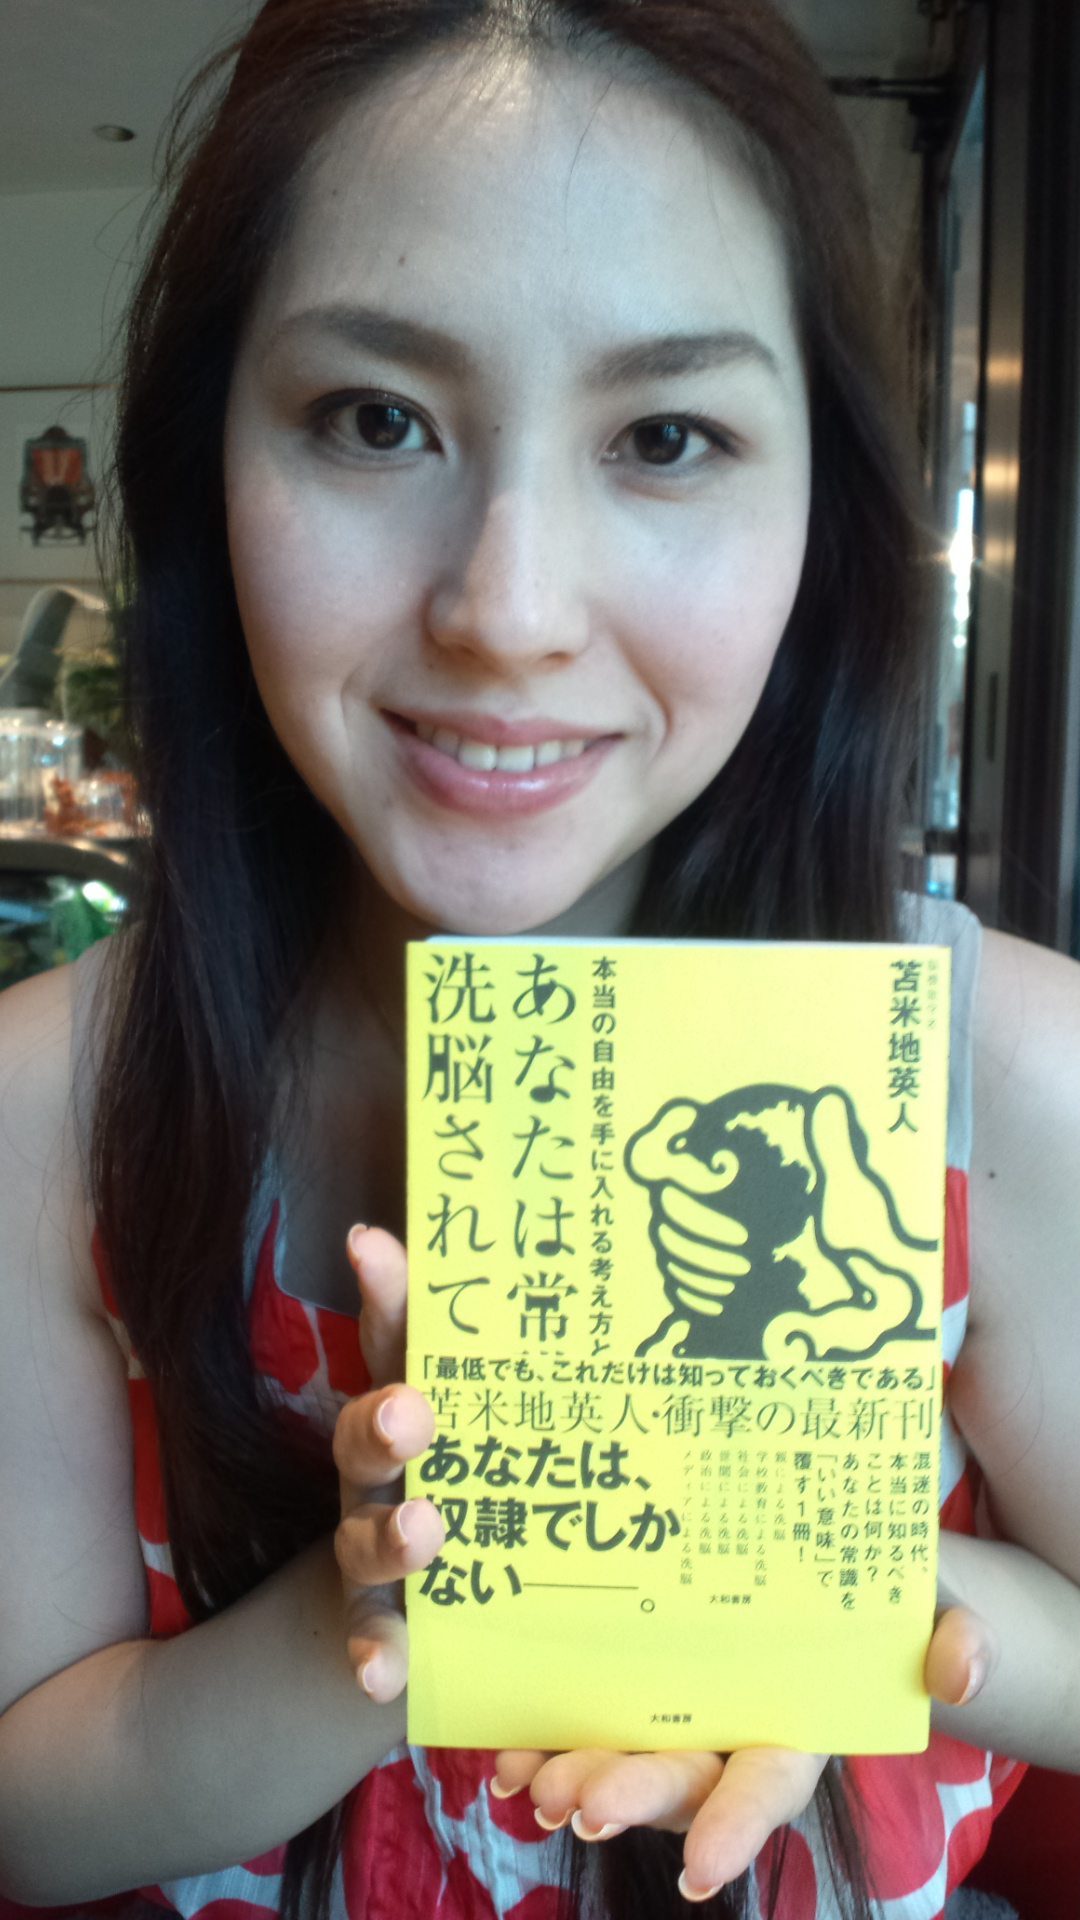 苫米地英人
本当の自由を手に入れる考え方と
あなたは常
洗脳されて
「最低でも、これだけは知っておくべきである」
苫米地英人・衝撃の最新刊
混迷の時代、
本当に知るべき
ことは何か?
あなたの常識を
「いい意味」で
覆す1冊!
親による洗脳
学校教育による洗脳
社会による洗脳
世間による洗脳
政治による洗脳
メディアによる洗脳
大和書房
あなたは、
奴隷でしか
ない――。
大和書房